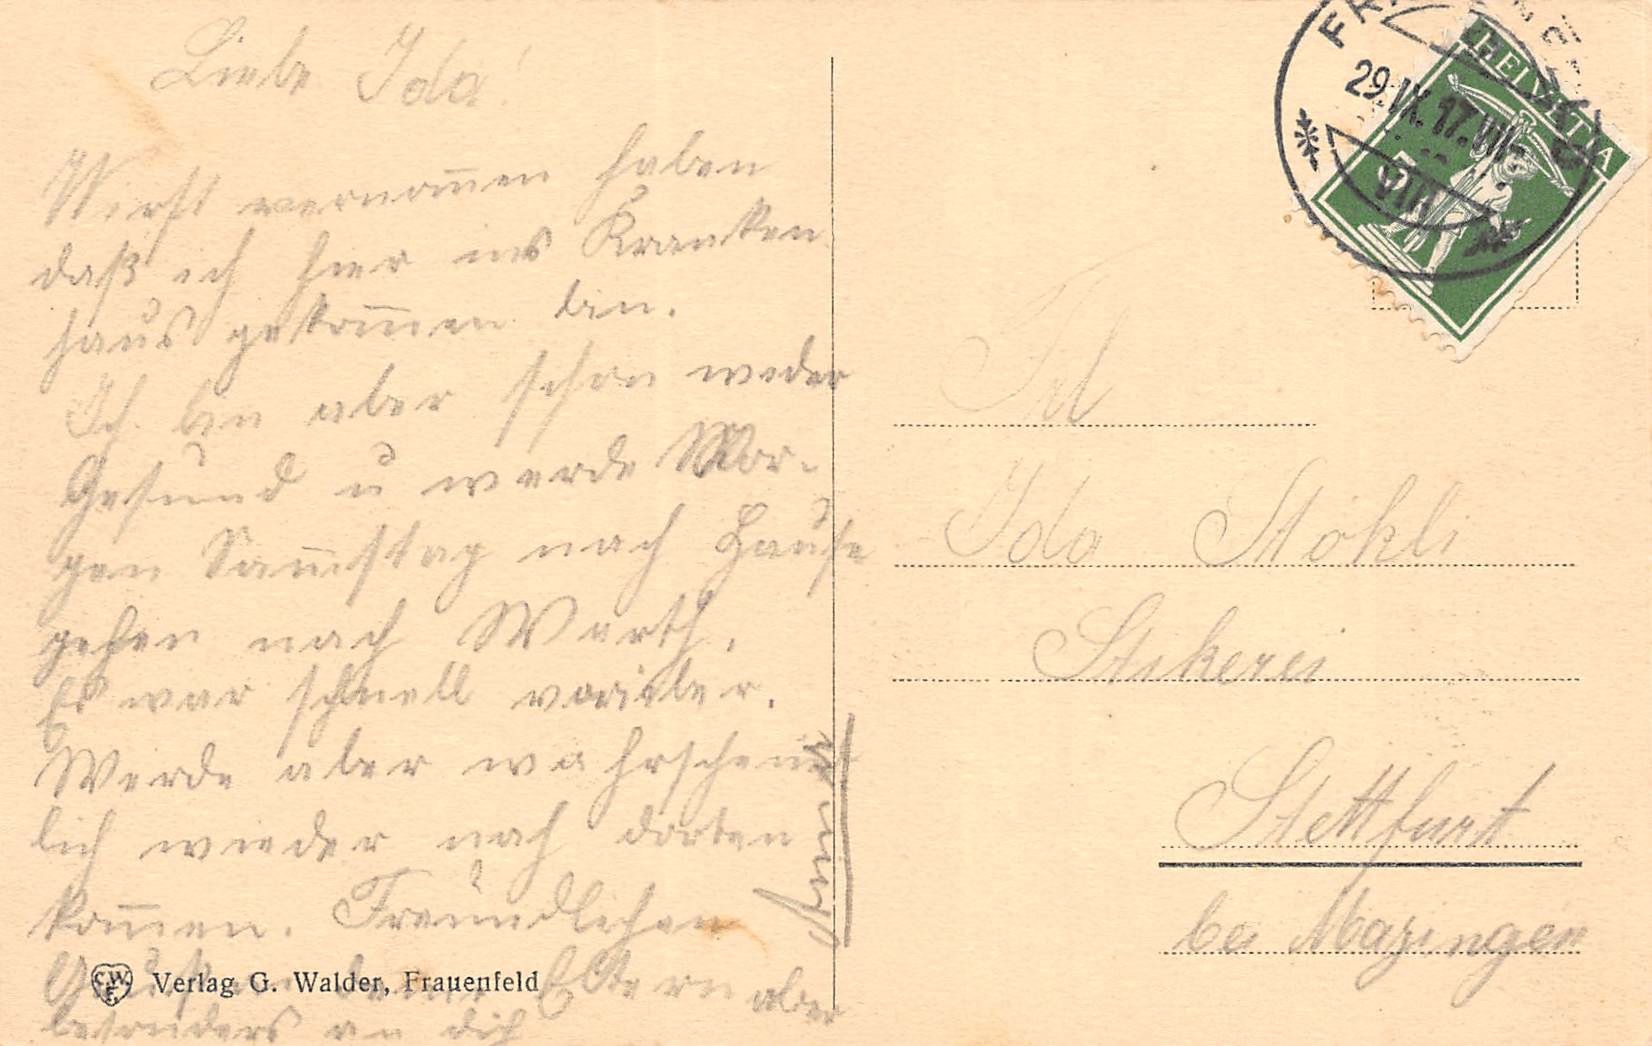 Liebe Ida!
Wirst vernom̅en haben
daß ich hier ins Kranken
haus gekom̅en bin.
Ich bin aber schon wieder
Gesund u werde Mor-
gen Sam̅stag nach Hause
gehen nach Warth.
Es war schnell vorüber.
Werde aber wahrschein
lich wieder nach dorten
kom̅en. Freundlichen
Gruß Eltern aber
besonders an dich
Verlag G. Walder, Frauenfeld
HELVETIA
5
29.IX.17.VIII-
VIII
Frl
Ida Stökli
Stikerei
Stettfurt
bei Mazingen